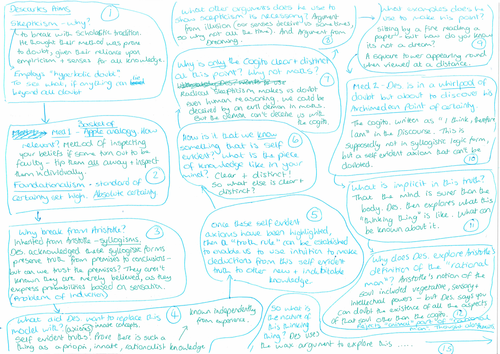 Descartes Aims
1
Skepticism - why?
- to break with Scholastic tradition.
He thought their method was prone
to doubt, given their reliance upon
empiricism + senses for all knowledge.
Employs "hyperbolic doubt"
to see what, if anything can be
beyond all doubt
Med 1 - Apple analogy How
relevant? Method of inspecting
your beliefs if some turn out to be
faulty - tip them all away + inspect
them individually.
2
Foundationalism - standard of
certainty set high. Absolute certainty.
Why break from Aristotle?
3
Inherited from Aristotle - syllogisms.
Des. acknowledged these syllogistic forms
preserve truth from premises to conclusion -
but can we trust the premises? They aren't
known they are merely believed, as they
express probabilities based on sensation.
Problem of induction)
What did Des. want to replace this
model with? (axioms) innate concepts.
4
Self evident truths. Prove there is such a
thing as a propria, innate, rationalist knowledge
known independently
from experience.
Once these self evident
axioms have been highlighted,
5
then a "truth rule" can be established
to enable us to use intuition to make
deductions from the now self evident
truth to other new + indubitable
knowledge.
How is it that we know
something that is self
evident? What is the piece
of knowledge like in your
mind? Clear + distinct!
So what else is clear +
distinct?
6
Why is only the Cogito clear + distinct
at this point? Why not maths?
7
Radical Skepticism makes us doubt
even human reasoning, we could be
deceived by an evil demon in maths.
But the demon can't deceive us with
the cogito.
What other arguments does he use
to show scepticism is necessary? Argument
from illusion (our senses deceive us sometimes,
so why not all the time). And Argument from
dreaming.
8
What examples does he
use to make his point?
Sitting by a fire reading a
paper - but how do you know
its not a dream?
9
A square tower appearing round
when viewed at a distance.
Med 2 - Des is in a whirlpool of
doubt but about to discover his
Archimedian Point of certainty.
The cogito. Written as "I think, therefore
I am" in the Discourse. This is
supposedly not in syllogistic logic form,
but a self evident axiom that can't be
doubted.
10
What is implicit in this truth?
That the mind is surer than the
body, Des. then explores what this
"thinking thing" is like. What can
be known about it.
11
Why does Des. explore Aristotle's
definition of the "rational
man"? Aristotle's notion of the
soul included vegetative, sensory +
intellectual powers - but Des says you
can doubt the existence of all the aspects
of that soul other than the cogito.
12
So what is
the nature
of this thinking
thing? Des uses
the wax argument to explore this .....
13